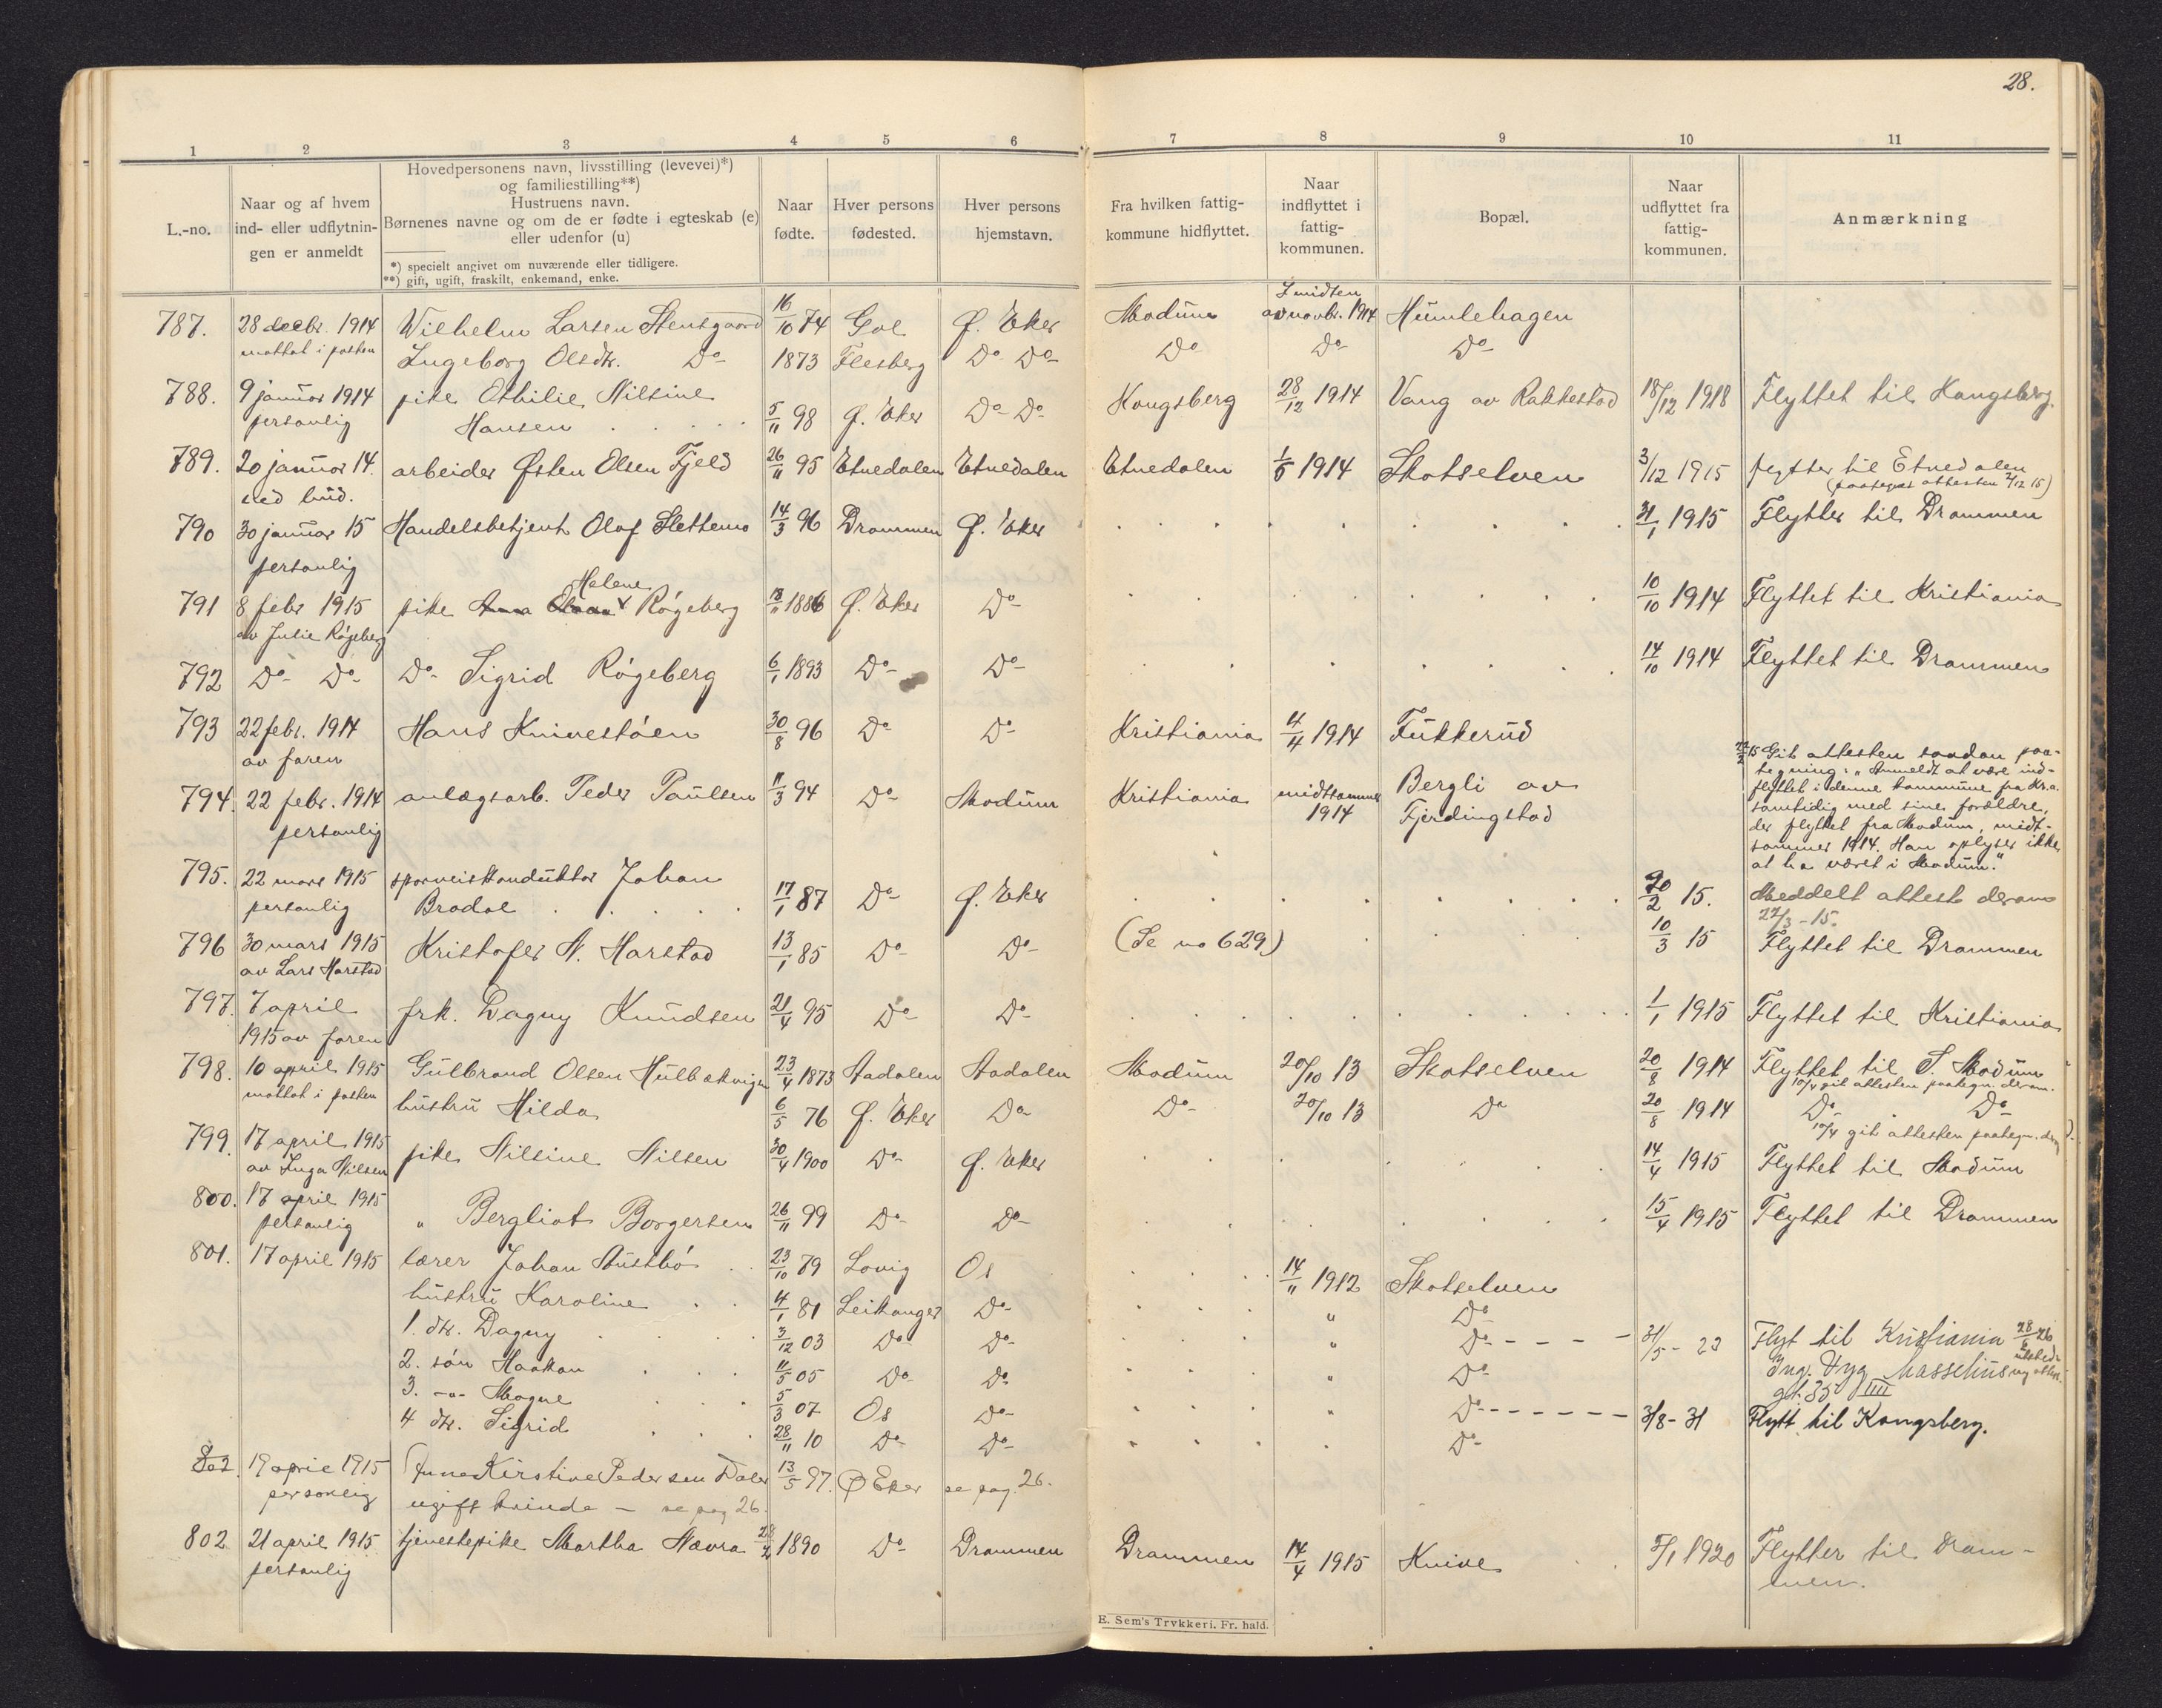 28.
1 2 3 4 5 6 7 8 9 10 11
L.-no.
Naar og af hvem
ind- eller udflytnin-
gen er anmeldt
Hovedpersonens navn, livsstilling (levevei)*)
og familiestilling**)
Hustruens navn.
Børnenes navne og om de er fødte i egteskab (e)
eller udenfor (u)
*) specielt angivet om nuværende eller tidligere.
**) gift, ugift, fraskilt, enkemand, enke.
Naar
fødte.
Hver persons
fødested.
Hver persons
hjemstavn.
Fra hvilken fattig-
kommune hidflyttet.
Naar
indflyttet i
fattig-
kommunen.
Bopæl.
Naar
udflyttet fra
fattig-
kommunen.
Anmærkning
787. 28 decbr. 1914 Wilhelm Larsen Stensgaard 16/10 74 Gol Ø. Eker Modum I midten av novbr. 1914 Humlehagen
mottat i posten Ingeborg Olsdtr. Do 1873 Flesberg Do Do Do Do Do
788. 9 januar 1914 pike Othilie Nilsine Kongsberg 28/12 1914 Vang av Rakkestad 18/12 1918 Flyttet til Kongsberg.
personlig Hansen 5/11 98 Ø. Eker Do Do
789. 20 januar 14. arbeider Østen Olsen Fjeld 26/11 95 Etnedalen Etnedalen Etnedalen 1/5 1914 Skotselven 3/12 1915 flytter til Etnedalen
ved bud. (paategnet attesten 2/12 15)
790 30 januar 15 Handelsbetjent Olaf Slettemo 14/3 96 Drammen Ø. Eker 31/1 1915 Flytter til Drammen
personlig
Helene
791 8 febr 1915 pike Anna Røgeberg 1886 Ø. Eker Do 10/10 1914 Flyttet til Kristiania
av Julie Røgeberg
792 Do Do Do Sigrid Røgeberg 6/1 1893 Do Do 14/10 1914 Flyttet til Drammen
793 22 febr. 1914 Hans Knivestøen 30/8 96 Do Do Kristiania 4/4 1914 Fukkerud
av faren
22/2 15 Git attesten saadan paa-
tegning: "Anmeldt at være ind-
flyttet i denne kommune fra Kr.a.
samtidig med sine forældre,
der flyttet fra Modum, midt-
sommer 1914. Han oplyser ikke
at ha været i Modum."
794. 22 febr. 1914 anlægsarb. Peder Paulsen 11/3 94 Do Modum Kristiania midtsommer Bergli av
personlig 1914 Fjerdingstad
795. 22 mars 1915 sporveiskonduktør Johan
personlig Bradal 17/1 87 Do Ø. Eker 20/2 15. Meddelt attest derom
22/3 - 15.
796 30 mars 1915 Kristofer N. Harstad 13/1 85 Do Do (Se no 629) 10/3 15 Flyttet til Drammen
av Lars Harstad
797. 7 april frk. Dagny Knudsen 21/4 95 Do Do 1/1 1915 Flyttet til Kristiania
1915 av faren
798. 10 april 1915 Gulbrand Olsen 23/4 1873 Aadalen Aadalen Modum 20/10 13 Skotselven 20/8 1914 Flyttet til S. Modum
10/4 git attesten paategn. derom.
mottat i posten hustru Hilda 6/5 76 Ø. Eker Do Do 20/10 13 Do 20/8 1914 Do Do
10/4 git attesten paategn.
799. 17 april 1915 pike Nilsine Nilsen 30/4 1900 Do Ø. Eker 14/4 1915 Flyttet til Modum
av Inga Nilsen
800. 17 april 1915 " Bergliot Borgersen 26/11 99 Do Do 15/4 1915 Flyttet til Drammen
personlig
801. 17 april 1915 lærer Johan Austbø 23/10 79 Os 14/11 1912 Skotselven
hustru Karoline 4/1 81 Leikanger Do " Do
1. dtr. Dagny 3/12 03 Do Do " Do 31/5 - 23 Flyt til Kristiania 28/
2. søn Haakon 11/5 05 Do Do " Do
3. -"- Magne 5/3 07 Os Do " Do 3/8 - 31 Flytt til Kongsberg.
4 dtr. Sigrid 28/11 10 Do Do Do
802. 19 april 1915 Anne Kirstine Pedersen Daler 13/5 97. Ø Eker se pag. 26.
personlig ugift kvinde — se pag 26.
802 21 april 1915 tjenestepike Martha Hævra 1890 Do Drammen Drammen 14/4 1915 Knive 5/1 1920 Flytter til Dram-
personlig men.
E. Sem's Trykkeri. Fr. hald.